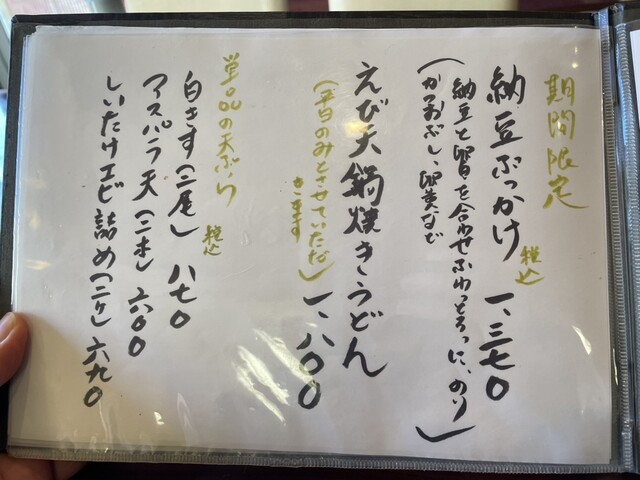 期間限定
納豆ぶっかけ 税込 一、三七〇
(納豆と醤を合わせふわっとろっに、のり
かつおぶし、卵黄など)
えび天鍋焼きうどん 一、八〇〇
(平日のみとさせていただ
きます)
単品の天ぷら 税込
白きす(二尾) 八七〇
アスパラ天(二本) 六〇〇
しいたけエビ詰め(二ケ) 六九〇